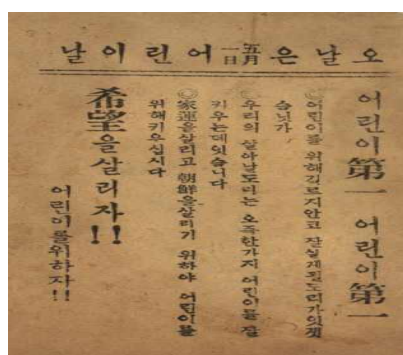 오날은 五月一日 어린이날
어린이 第一 어린이 第一
◎어린이를 위해길르지안코 잘살게될도리가잇겟
슴닛가
◎우리의 살아날도리는 오즉한가지 어린이를 잘
키우는데잇슴니다
◎家運을살리고 朝鮮을살리기 위하야 어린이를
위해키으십시다
希望을살리자!!
어린이를위하자!!